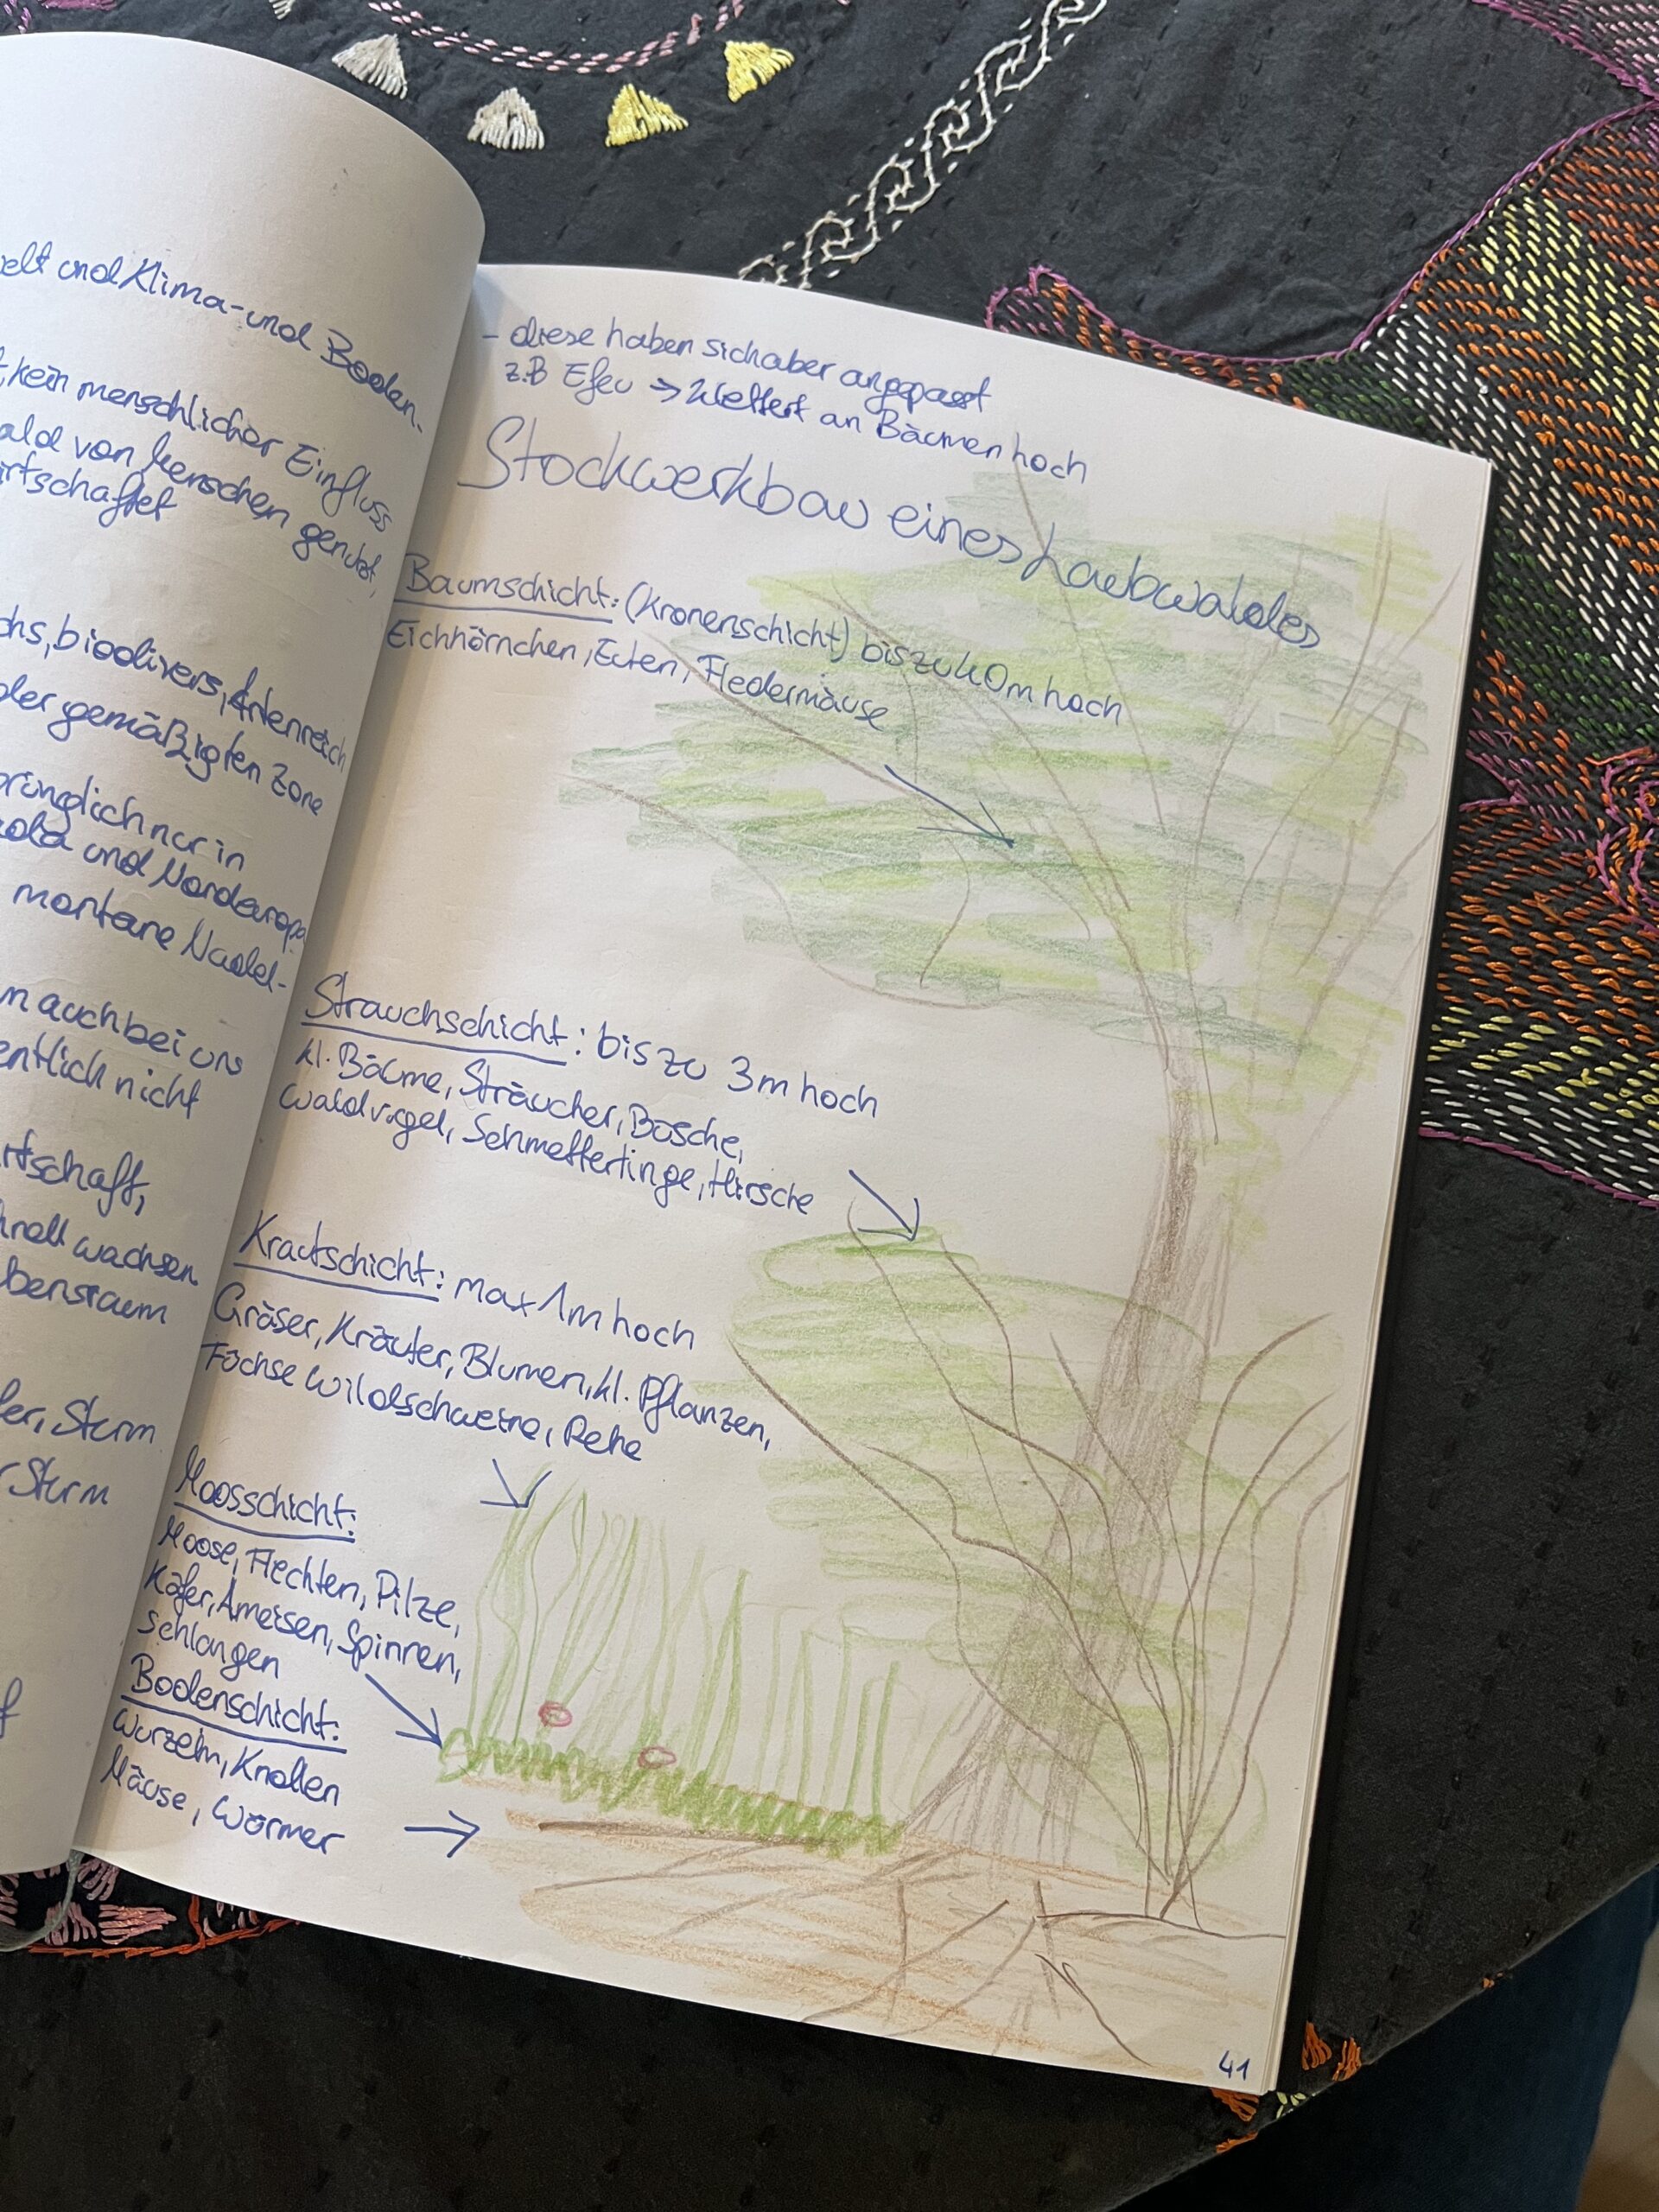 elt und Klima- und Boden-
kein menschlicher Einfluss
ald von Menschen genutzt,
irtschaftet
chs, biodivers, Artenreich
der gemäßigten Zone
prünglich nur in
und Nordeuropa
montane Nadel-
m auch bei uns
entlich nicht
rtschaft,
hnell wachsen
bensraum
fer, Sturm
r Sturm
f
- diese haben sich aber angepasst
z.B Efeu → klettert an Bäumen hoch
Stockwerkbau eines Laubwaldes
Baumschicht: (Kronenschicht) bis zu 40m hoch
Eichhörnchen, Eulen, Fledermäuse
Strauchschicht: bis zu 3m hoch
kl. Bäume, Sträucher, Büsche,
Waldvögel, Schmetterlinge, Hirsche
Krautschicht: max 1m hoch
Gräser, Kräuter, Blumen, kl. Pflanzen,
Füchse Wildschweine, Rehe
Moosschicht:
Moose, Flechten, Pilze,
Käfer, Ameisen, Spinnen,
Schlangen
Bodenschicht:
Wurzeln, Knollen
Mäuse, Würmer →
41